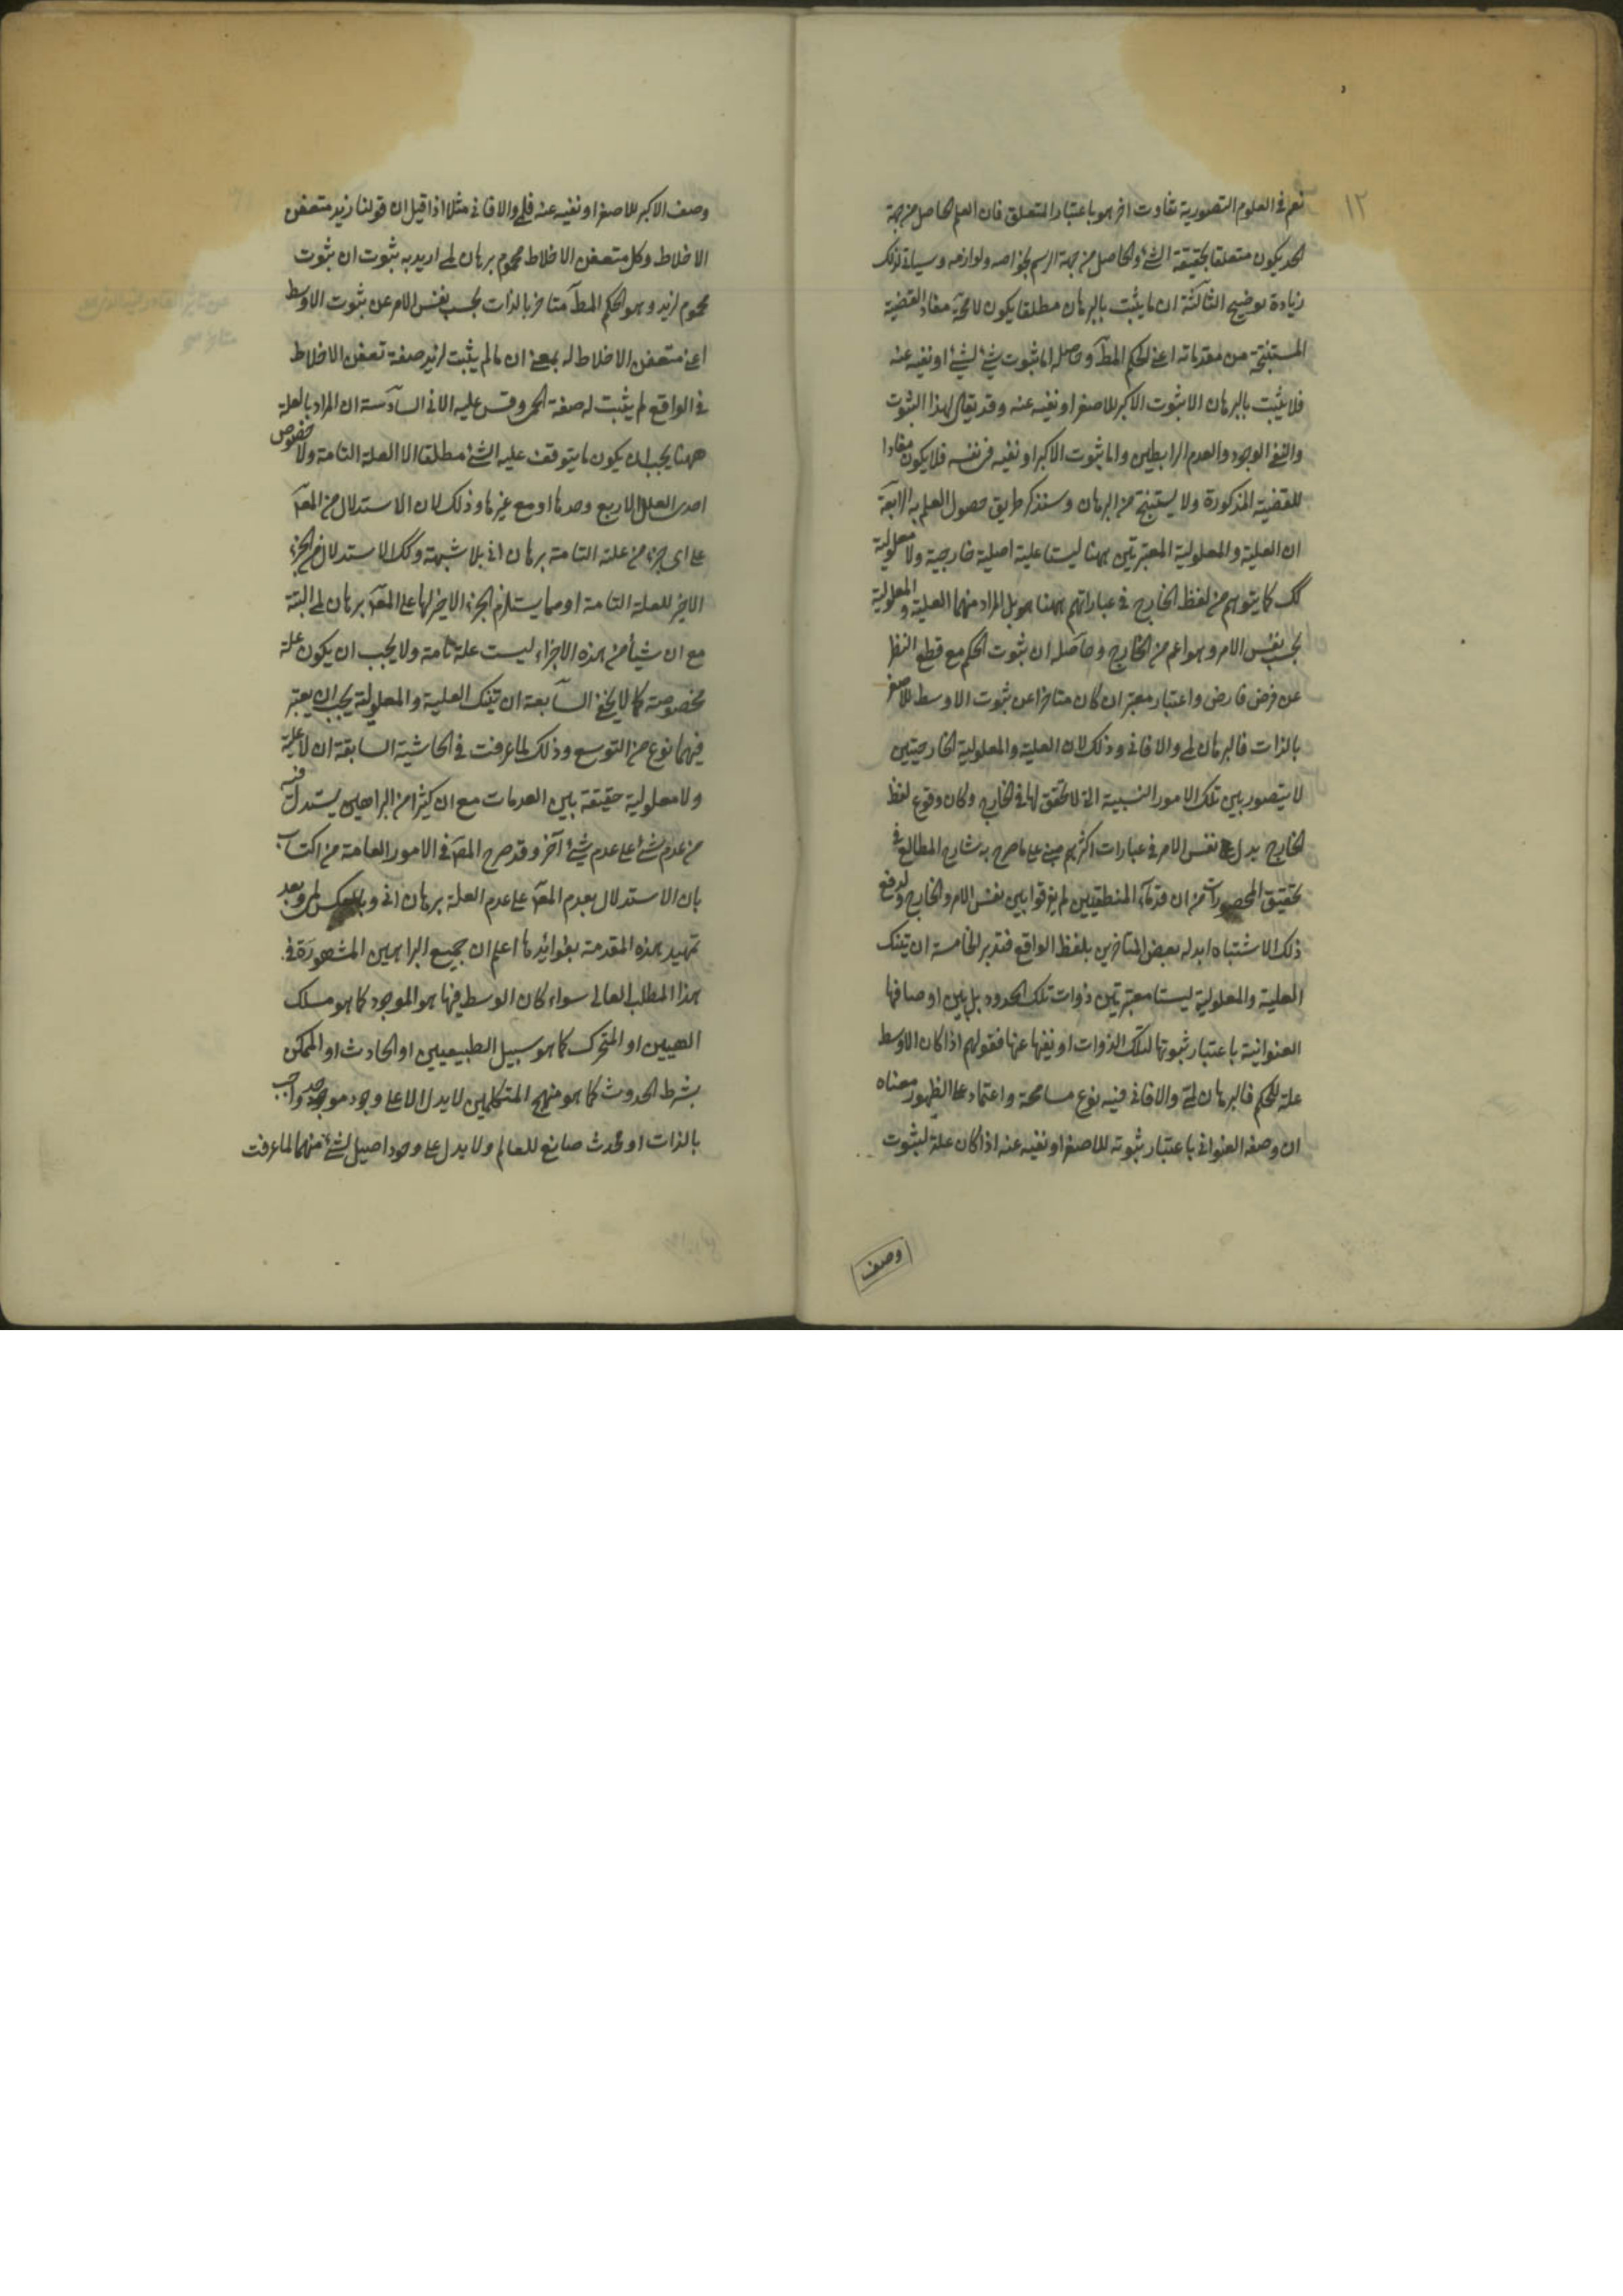 ١٢
نعم في العلوم التصورية تفاوت اخر هو باعتبار المتعلق فان العلم الحاصل من جهة
الحد يكون متعلقا بحقيقة الشئ والحاصل من جهة الرسم بخواصه ولوازمه وسياتى لذلك
زيادة توضيح الثالثة ان ما يثبت بالبرهان مطلقا يكون لا محة مفاد القضية
المستنتجة من مقدماته اعنى الحكم المط وحاصله اما ثبوت شئ لشئ او نفيه عنه
فلا يثبت بالبرهان الا ثبوت الاكبر للاصغر او نفيه عنه وقد يقال لهذا الثبوت
والنفي الوجود والعدم الرابطين واما ثبوت الاكبر او نفيه في نفسه فلا يكون مفادا
للقضية المذكورة ولا يستنتج من البرهان وسنذكر طريق حصول العلم به الرابعة
ان العلية والمعلولية المعتبرتين ههنا ليستا علية اصلية خارجية ولا معلولية
كك كما يتوهم من لفظ الخارج في عباراتهم ههنا هو بل المراد منهما العلية والمعلولية
بحسب نفس الامر وهو اعم من الخارج وحاصله ان ثبوت الحكم مع قطع النظر
عن فرض فارض واعتبار معتبر ان كان متاخرا عن ثبوت الاوسط للاصغر
بالذات فالبرهان لمى والا فانى وذلك لان العلية والمعلولية الخارجيتين
لا يتصور بين تلك الامور النسبية التى لا تحقق لها في الخارج وكان وقوع لفظ
الخارج بدل نفس الامر في عبارات اكثرهم مبنى على ما صرح به شارح المطالع في
تحقيق المحصورات من ان قدماء المنطقيين لم يفرقوا بين نفس الامر والخارج ولدفع
ذلك الاشتباه ابدله بعض المتاخرين بلفظ الواقع فتدبر الخامسة ان تينك
العلية والمعلولية ليستا معتبرتين ذوات تلك الحدود بل بين اوصافها
العنوانية باعتبار ثبوتها لتلك الذوات او نفيها عنها فقولهم اذا كان الاوسط
علة للحكم فالبرهان لمى والا فانى فيه نوع مسامحة واعتماد على الظهور معناه
ان وصفه العنوانى باعتبار ثبوته للاصغر او نفيه عنه اذا كان علة لثبوت
وصف
وصف الاكبر للاصغر او نفيه عنه فلمى والا فانى مثلا اذا قيل ان قولنا زيد متعفن
الاخلاط وكل متعفن الاخلاط محموم برهان لمى اريد به ثبوت ان ثبوت
محموم لزيد وهو الحكم المط متاخر بالذات بحسب نفس الامر عن ثبوت الاوسط
اعنى متعفن الاخلاط له بمعنى ان ما لم يثبت لزيد صفة تعفن الاخلاط
في الواقع لم يثبت له صفة الحمى وقس عليه الانى السادسة ان المراد بالعلة
ههنا يجب ان يكون ما يتوقف عليه الشئ مطلقا لا العلة التامة ولا خصوص
احدى العلل الاربع وحدها او مع غيرها وذلك لان الاستدلال من المعلـ
على اى جزء من علته التامة برهان انى بلا شبهة وكك الاستدلال من الجزء
الاخير للعلة التامة او مما يستلزم الجزء الاخير لها على المعلـ برهان لمى البتة
مع ان شيأ من هذه الاجزاء ليست علة تامة ولا يجب ان يكون علة
مخصوصة كما لا يخفى السابعة ان تينك العلية والمعلولية يجب ان يعتبر
فيهما نوع من التوسع وذلك لما عرفت في الحاشية السابقة ان لا علية
ولا معلولية حقيقة بين العدمات مع ان كثيرا من البراهين يستدل فيه
من عدم شئ على عدم شئ آخر وقد صرح المص في الامور العامة من الكتاب
بان الاستدلال بعدم المعلـ على عدم العلة برهان انى وبالعكس لمى وبعد
تمهيد هذه المقدمة بفوائدها اعلم ان جميع البراهين المشهورة في
هذا المطلب العالى سواء كان الوسط فيها هو الموجود كما هو مسلك
الهيين او المتحرك كما هو سبيل الطبيعيين او الحادث او الممكن
بشرط الحدوث كما هو منهج المتكلمين لا يدل الا على وجود موجود واجب
بالذات او محدث صانع للعالم ولا يدل على وجود اصيل لشئ منهما لما عرفت